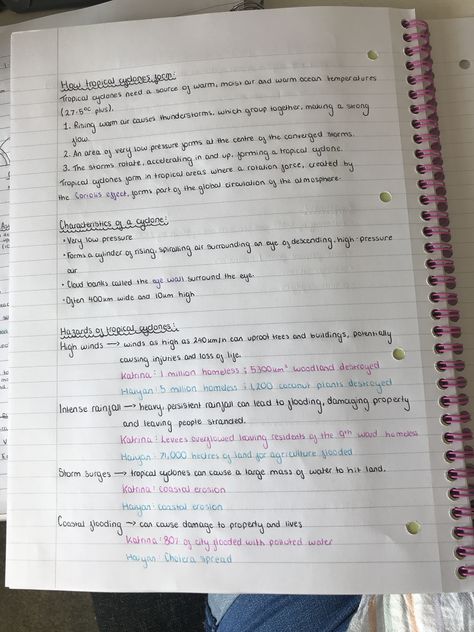 How tropical cyclones form:
Tropical cyclones need a source of warm, moist air and warm ocean temperatures
(27.5°C plus).
1. Rising warm air causes thunderstorms, which group together, making a strong
flow.
2. An area of very low pressure forms at the centre of the converged storms.
3. The storms rotate, accelerating in and up, forming a tropical cyclone.
Tropical cyclones form in tropical areas where a rotation force, created by
the Coriolis effect, forms part of the global circulation of the atmosphere.
Characteristics of a cyclone:
• Very low pressure
• Forms a cylinder of rising, spiralling air surrounding an eye of descending, high-pressure
air
• Cloud banks called the eye wall surround the eye.
• Often 400km wide and 10km high
Hazards of tropical cyclones:
High winds → winds as high as 240km/h can uproot trees and buildings, potentially
causing injuries and loss of life.
Katrina: 1 million homeless & 5300km² woodland destroyed
Haiyan: 5 million homeless & 1,200 coconut plants destroyed
Intense rainfall → heavy, persistent rainfall can lead to flooding, damaging property
and leaving people stranded.
Katrina: Levees overflowed leaving residents of the 9th ward homeless
Haiyan: 71,000 hectres of land for agriculture flooded
Storm surges → tropical cyclones can cause a large mass of water to hit land.
Katrina: coastal erosion
Haiyan: coastal erosion
Coastal flooding → can cause damage to property and lives
Katrina: 80% of city flooded with polluted water
Haiyan: Cholera spread